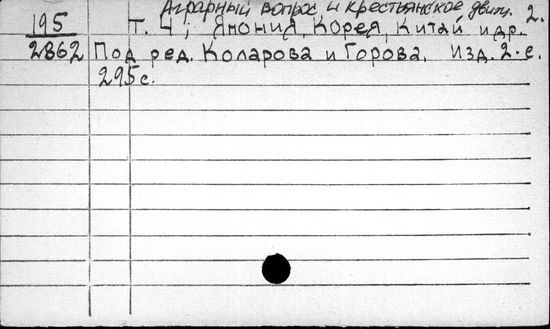 Аграрный вопрос и крестьянское движ. 2.
195 Т. 4; Япония, Корея, Китай и др.
2862 Под ред. Коларова и Горова. Изд. 2-е.
295 с.